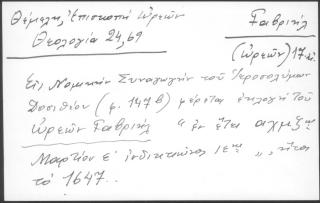 Θέμελη, Ἐπισκοπή Ὠρεῶν
Θεολογία 24, 69
Γαβριήλ
(Ὠρεῶν) 17 αἰ.
Εἰς Νομικὴν Συναγωγὴν τοῦ Ἱεροσολύμων
Δοσιθέου (φ. 147β) φέρεται ἐκλογὴ τοῦ
Ὠρεῶν Γαβριήλ " ἐν ἔτει αχμζῳ
Μαρτίου ε' ἰνδικτιῶνος ιεης ", ἤτοι
τὸ 1647..